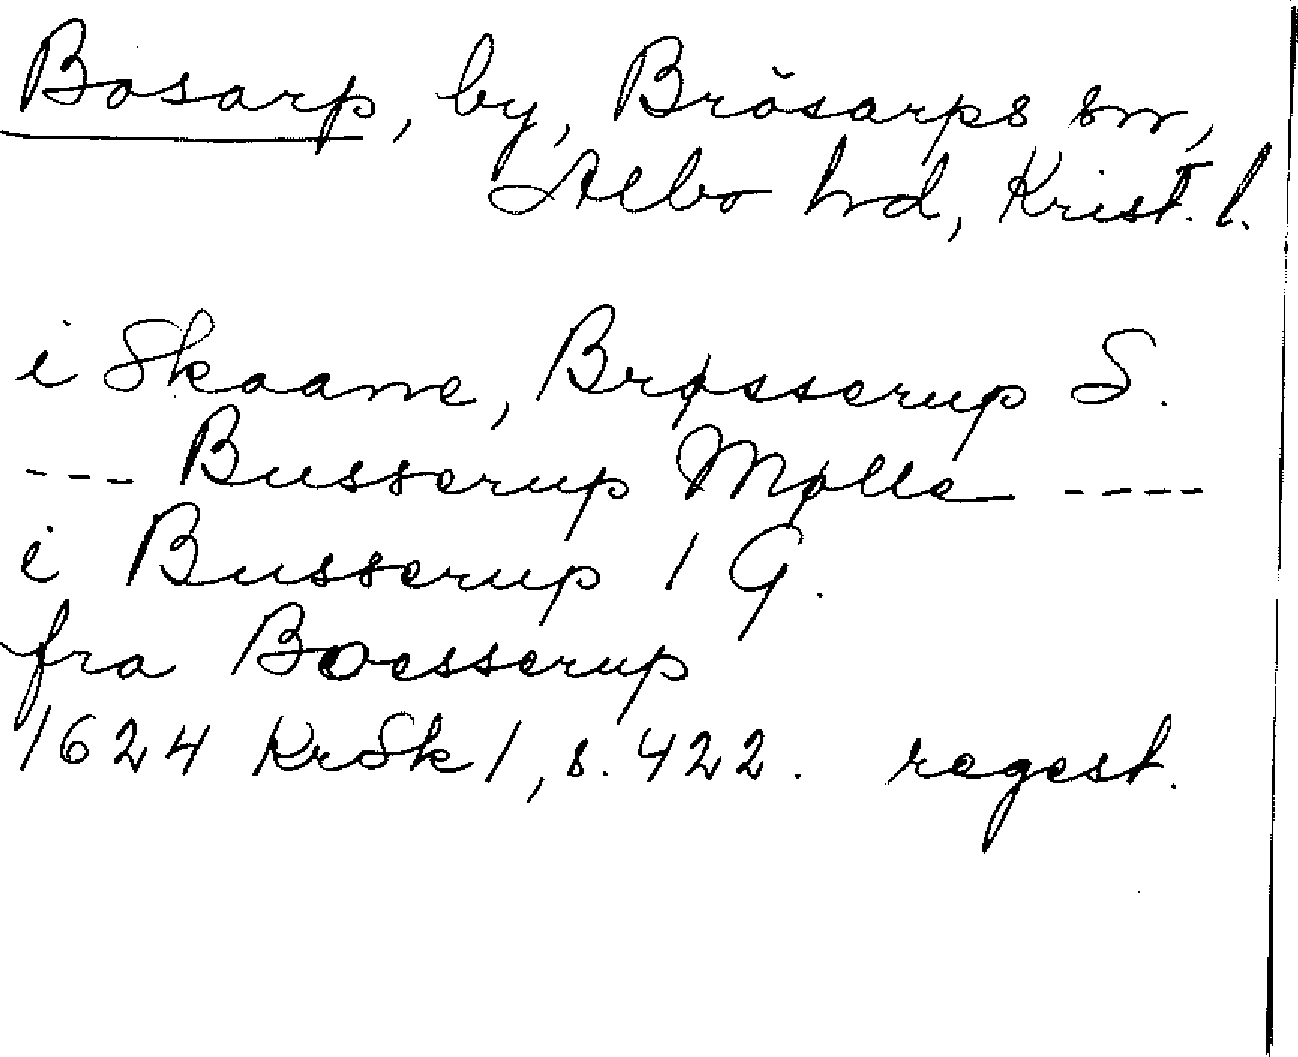 Bosarp, by, Brösarps sn,
Albo hd, Krist. l.
i Skaane, Brøsserup S.
--- Busserup Mølle ----
i Busserup 1 G.
fra Boesserup
1624 KrSk 1, s. 422. regest.